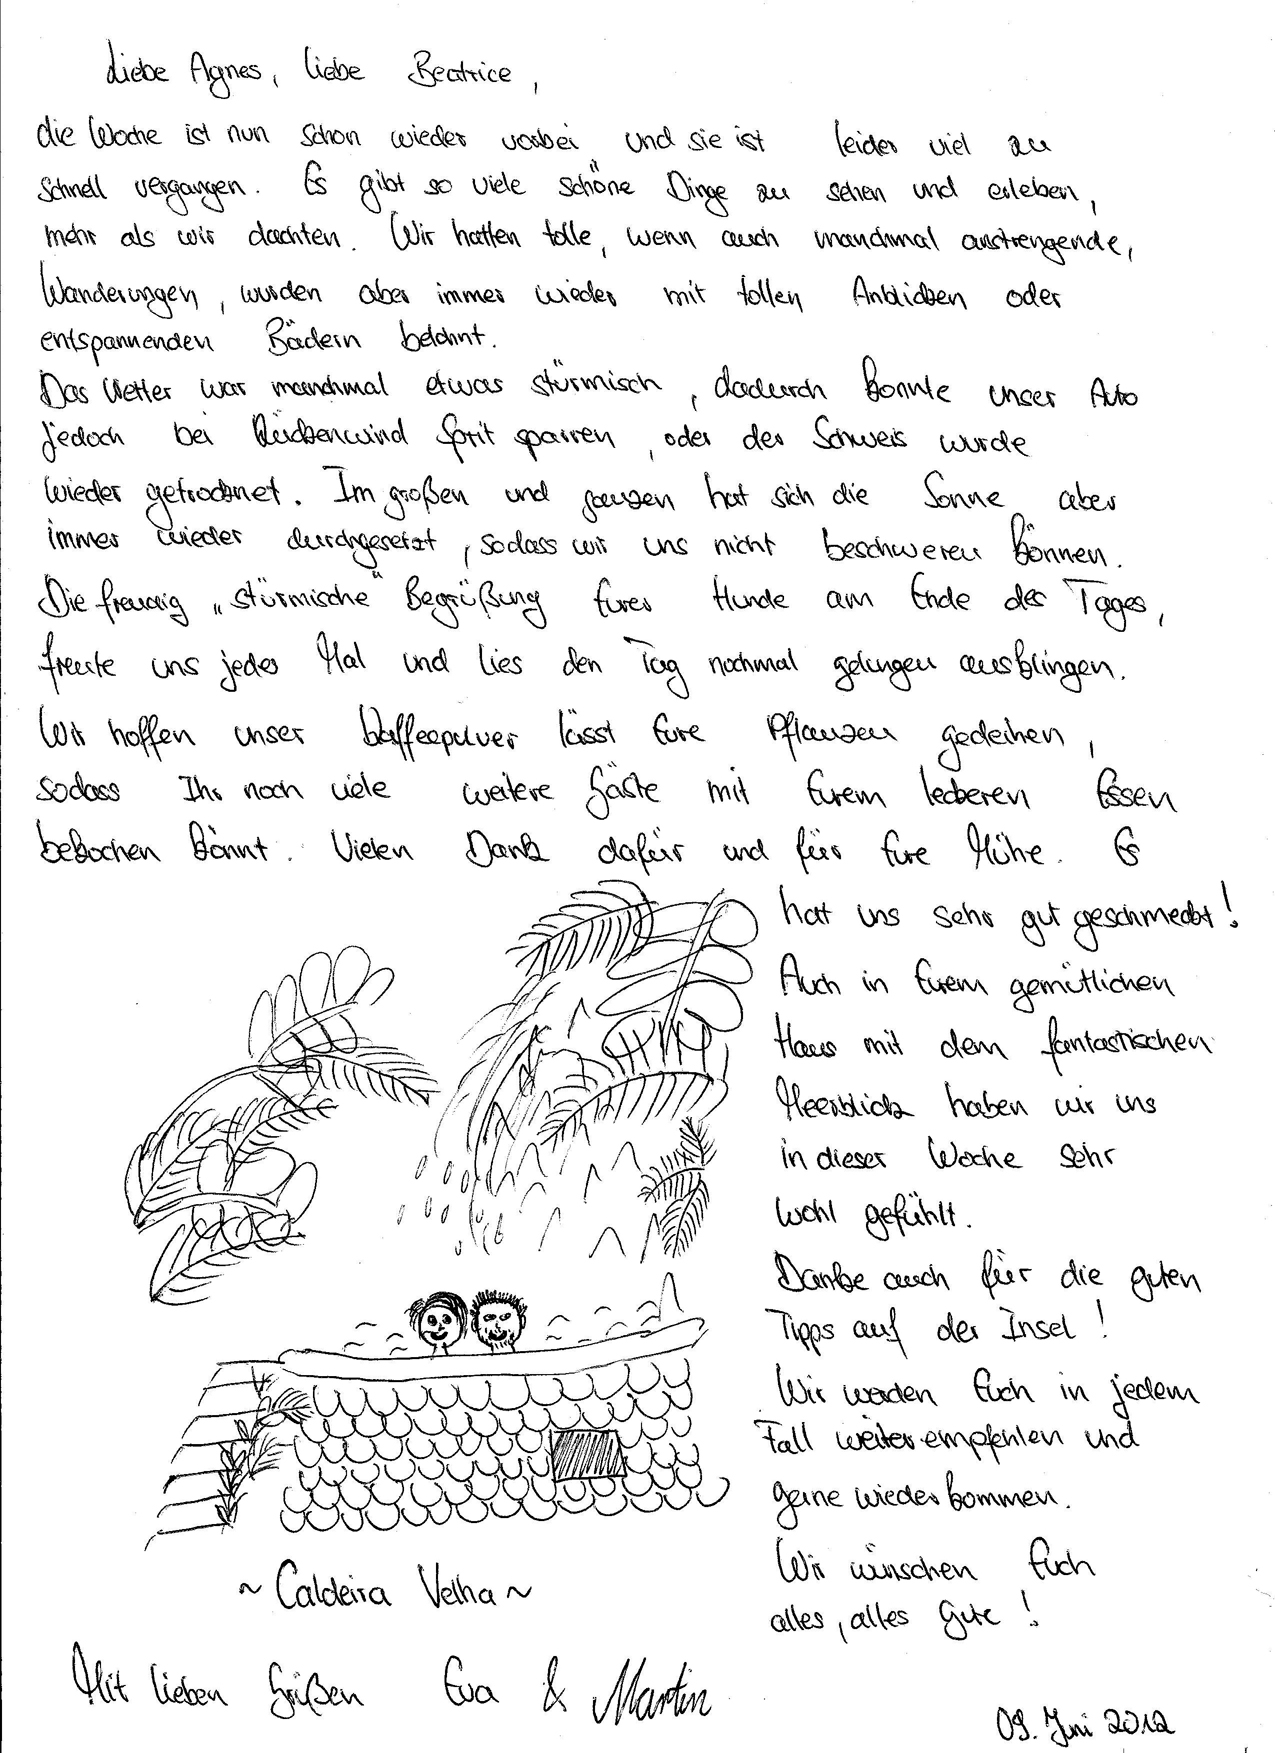 Liebe Agnes, liebe Beatrice,
die Woche ist nun schon wieder vorbei und sie ist leider viel zu
schnell vergangen. Es gibt so viele schöne Dinge zu sehen und erleben,
mehr als wir dachten. Wir hatten tolle, wenn auch manchmal anstrengende,
Wanderungen, wurden aber immer wieder mit tollen Anblicken oder
entspannenden Bädern belohnt.
Das Wetter war manchmal etwas stürmisch, dadurch konnte unser Auto
jedoch bei Rückenwind Sprit sparren, oder der Schweis wurde
wieder getrocknet. Im großen und ganzen hat sich die Sonne aber
immer wieder durchgesetzt, sodass wir uns nicht beschweren können.
Die freudig „stürmische“ Begrüßung Eurer Hunde am Ende des Tages,
freute uns jedes Mal und lies den Tag nochmal gelungen ausklingen.
Wir hoffen unser Kaffeepulver lässt Eure Pflanzen gedeihen,
sodass Ihr noch viele weitere Gäste mit Eurem leckeren Essen
bekochen könnt. Vielen Dank dafür und für Eure Mühe. Es
hat uns sehr gut geschmeckt!
Auch in Eurem gemütlichen
Haus mit dem fantastischen
Meerblick haben wir uns
in dieser Woche sehr
wohl gefühlt.
Danke auch für die guten
Tipps auf der Insel!
Wir werden Euch in jedem
Fall weiterempfehlen und
gerne wiederkommen.
Wir wünschen Euch
alles, alles Gute!
~ Caldeira Velha ~
Mit lieben Grüßen Eva & Martin
09. Juni 2012